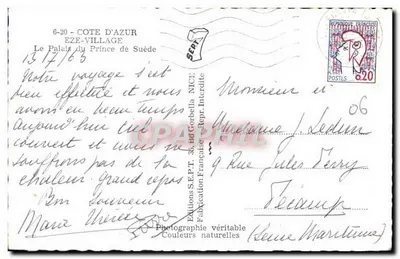 6-20 - COTE D'AZUR
EZE-VILLAGE
Le Palais du Prince de Suède
13/7/63
Notre voyage s'est
bien effectué et nous
avons eu beau temps
Aujourd'hui ciel
couvert et nous ne
souffrons pas de la
chaleur grand repos
Bon Souvenir
Marie Thérèse
SEPT
Editions S.E.P.T. Gorbella NICE
Fabrication Française - Repr. Interdite
Photographie véritable
Couleurs naturelles
REPUBLIQUE FRANCAISE
POSTES 0,20
06
Monsieur et
Madame J. Ledun
9 Rue Jules Ferry
Fécamp
(Seine Maritime)